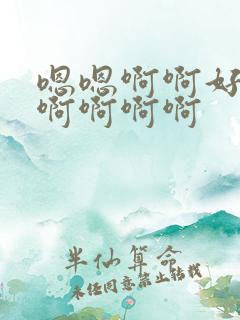 嗯嗯啊啊好
啊啊啊啊
半仙算命
未经同意禁止转载